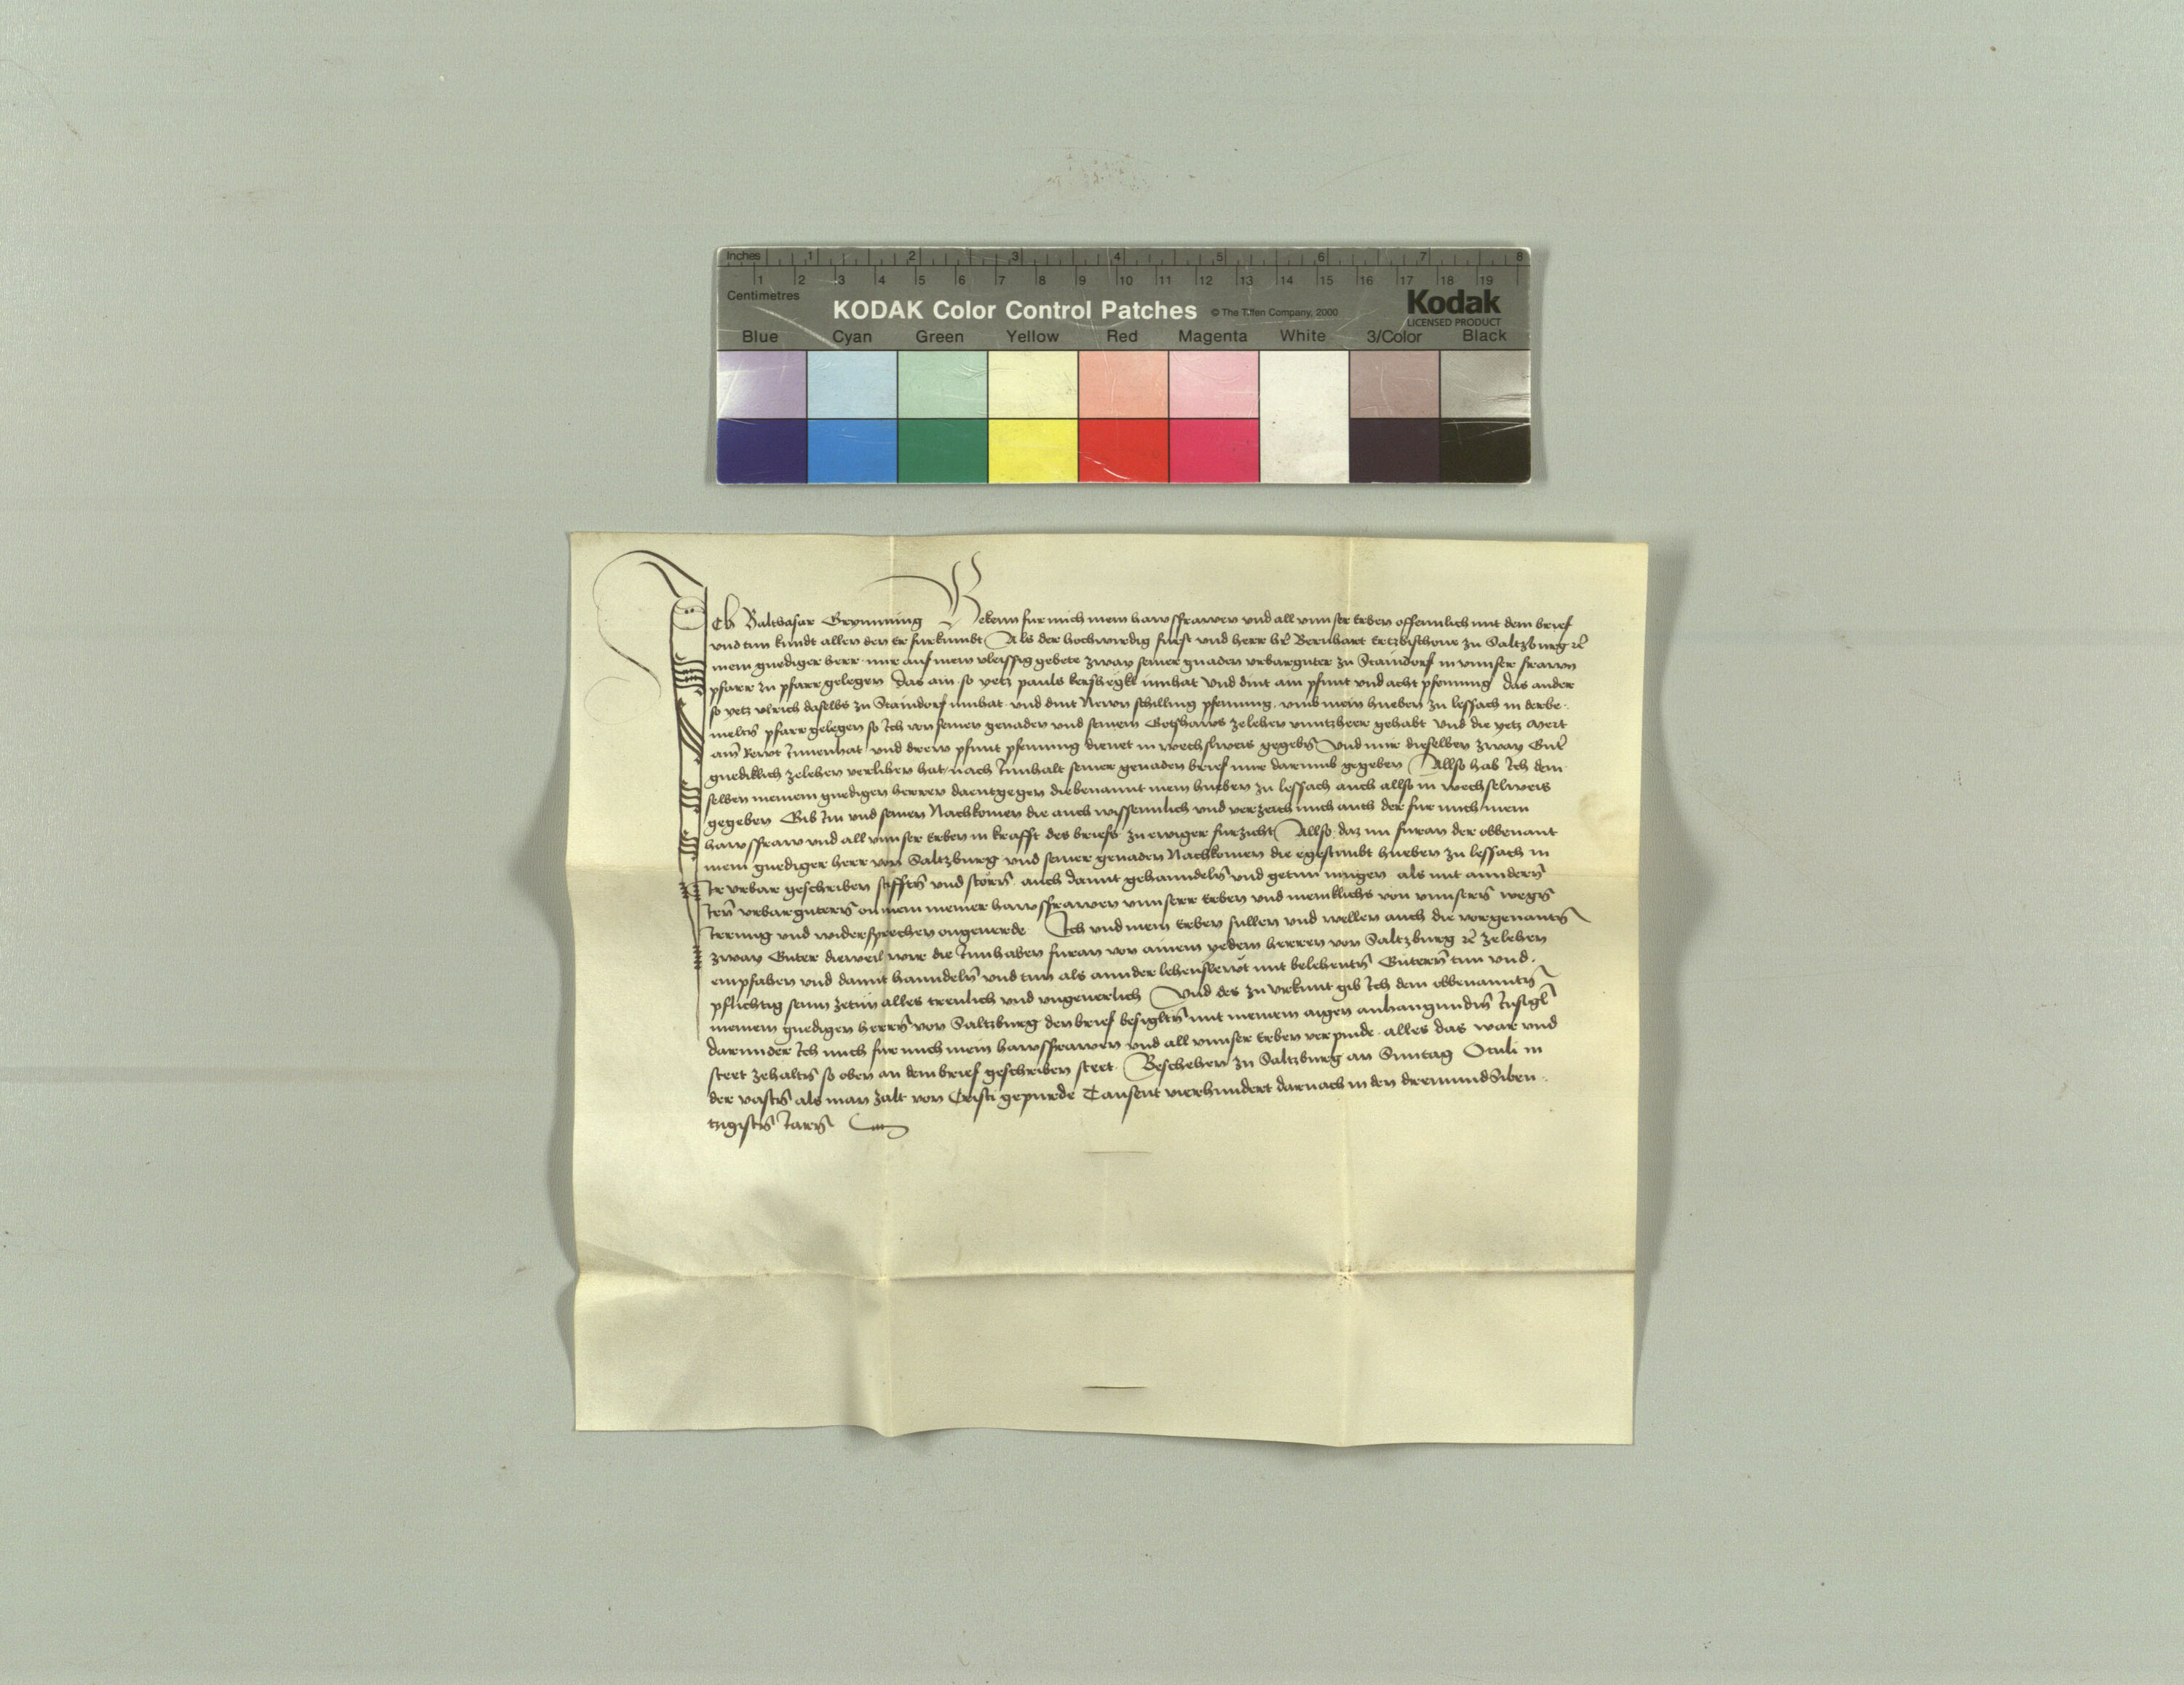 Inches 1 2 3 4 5 6 7 8
1 2 3 4 5 6 7 8 9 10 11 12 13 14 15 16 17 18 19
Centimetres
KODAK Color Control Patches © The Tiffen Company, 2000 Kodak
LICENSED PRODUCT
Blue Cyan Green Yellow Red Magenta White 3/Color Black
Ich Balthasar Grymming Bekenn fur mich mein hawsfrawen und all unnser erben offennlich mit dem brief
und tun kundt allen den er furkumbt Als der hochwirdig furst und herr her Bernhart Ertzbischove zu Saltzburg etc
mein gnediger herr mir auf mein vleissig gebete zway seiner gnaden urbarguter zu Staindorf in unnser frawn
pfarr zu pfarr gelegen Das ain so yetz pauls innhat und dint ain pfunt und acht pfenning das ander
so yetz ulrich daselbs zu Staindorf innhat und dint Newn schilling pfenning umb mein hueben zu lessach in derbe-
melten pfarr gelegen so Ich von seinen genaden und seinem Gotzhaws zelehen unntzherr gehabt und die yetz
am Innenhat und drew pfunt pfenning dienet in wechslweis gegeben Und mir dieselben zway Guter
gnediklich zelehen verlihen hat nach Innhalt seiner genaden brief mir darumb gegeben Allso hab Ich dem-
selben meinem gnedigen herren daentgegen diebenannt mein hueben zu lessach auch allso in wechselweis
gegeben Gib In und seinen Nachkomen die auch wissennlich und verzeich mich auch der fur mich mein
hawsfraw und all unnser erben in krafft des briefs zu ewiger furzicht Allso daz nu furan der obbenant
mein gnediger herr von Saltzburg und seiner genaden Nachkomen die egestimbt hueben zu lessach in
Ir urbar geschreiben stifften und storen auch damit gehanndeln und getun mugen als mit anndern
Iren urbargutern on mein meiner hawsfrawen unnserr erben und meniklichs von unnsern wegen
Irrung und widersprechen ongeverde Ich und mein erben sullen und wellen auch die vorgenanten
zway Guter dieweil wir die Innhaben furan von ainem yedem herren von Saltzburg etc zelehen
empfahen und damit hanndeln und tun als annder lehenslewt mit belehenten Gutern tun und
pflichtig sein zetun alles treulich und ungeverlich Und des zu urkunt gib Ich dem obbenannten
meinem gnedigen herren von Saltzburg den brief besiglten mit meinem aigen anhangunden Insigl
darunder Ich mich fur mich mein hawsfrawen und all unnser erben verpinde alles das war und
steet zehalten so oben an dem brief geschriben steet Beschehen zu Saltzburg an Sunntag Oculi in
der vasten als man zalt von Cristi gepurde Tausent vierhundert darnach in den dreiundsiben-
tzigisten Jaren